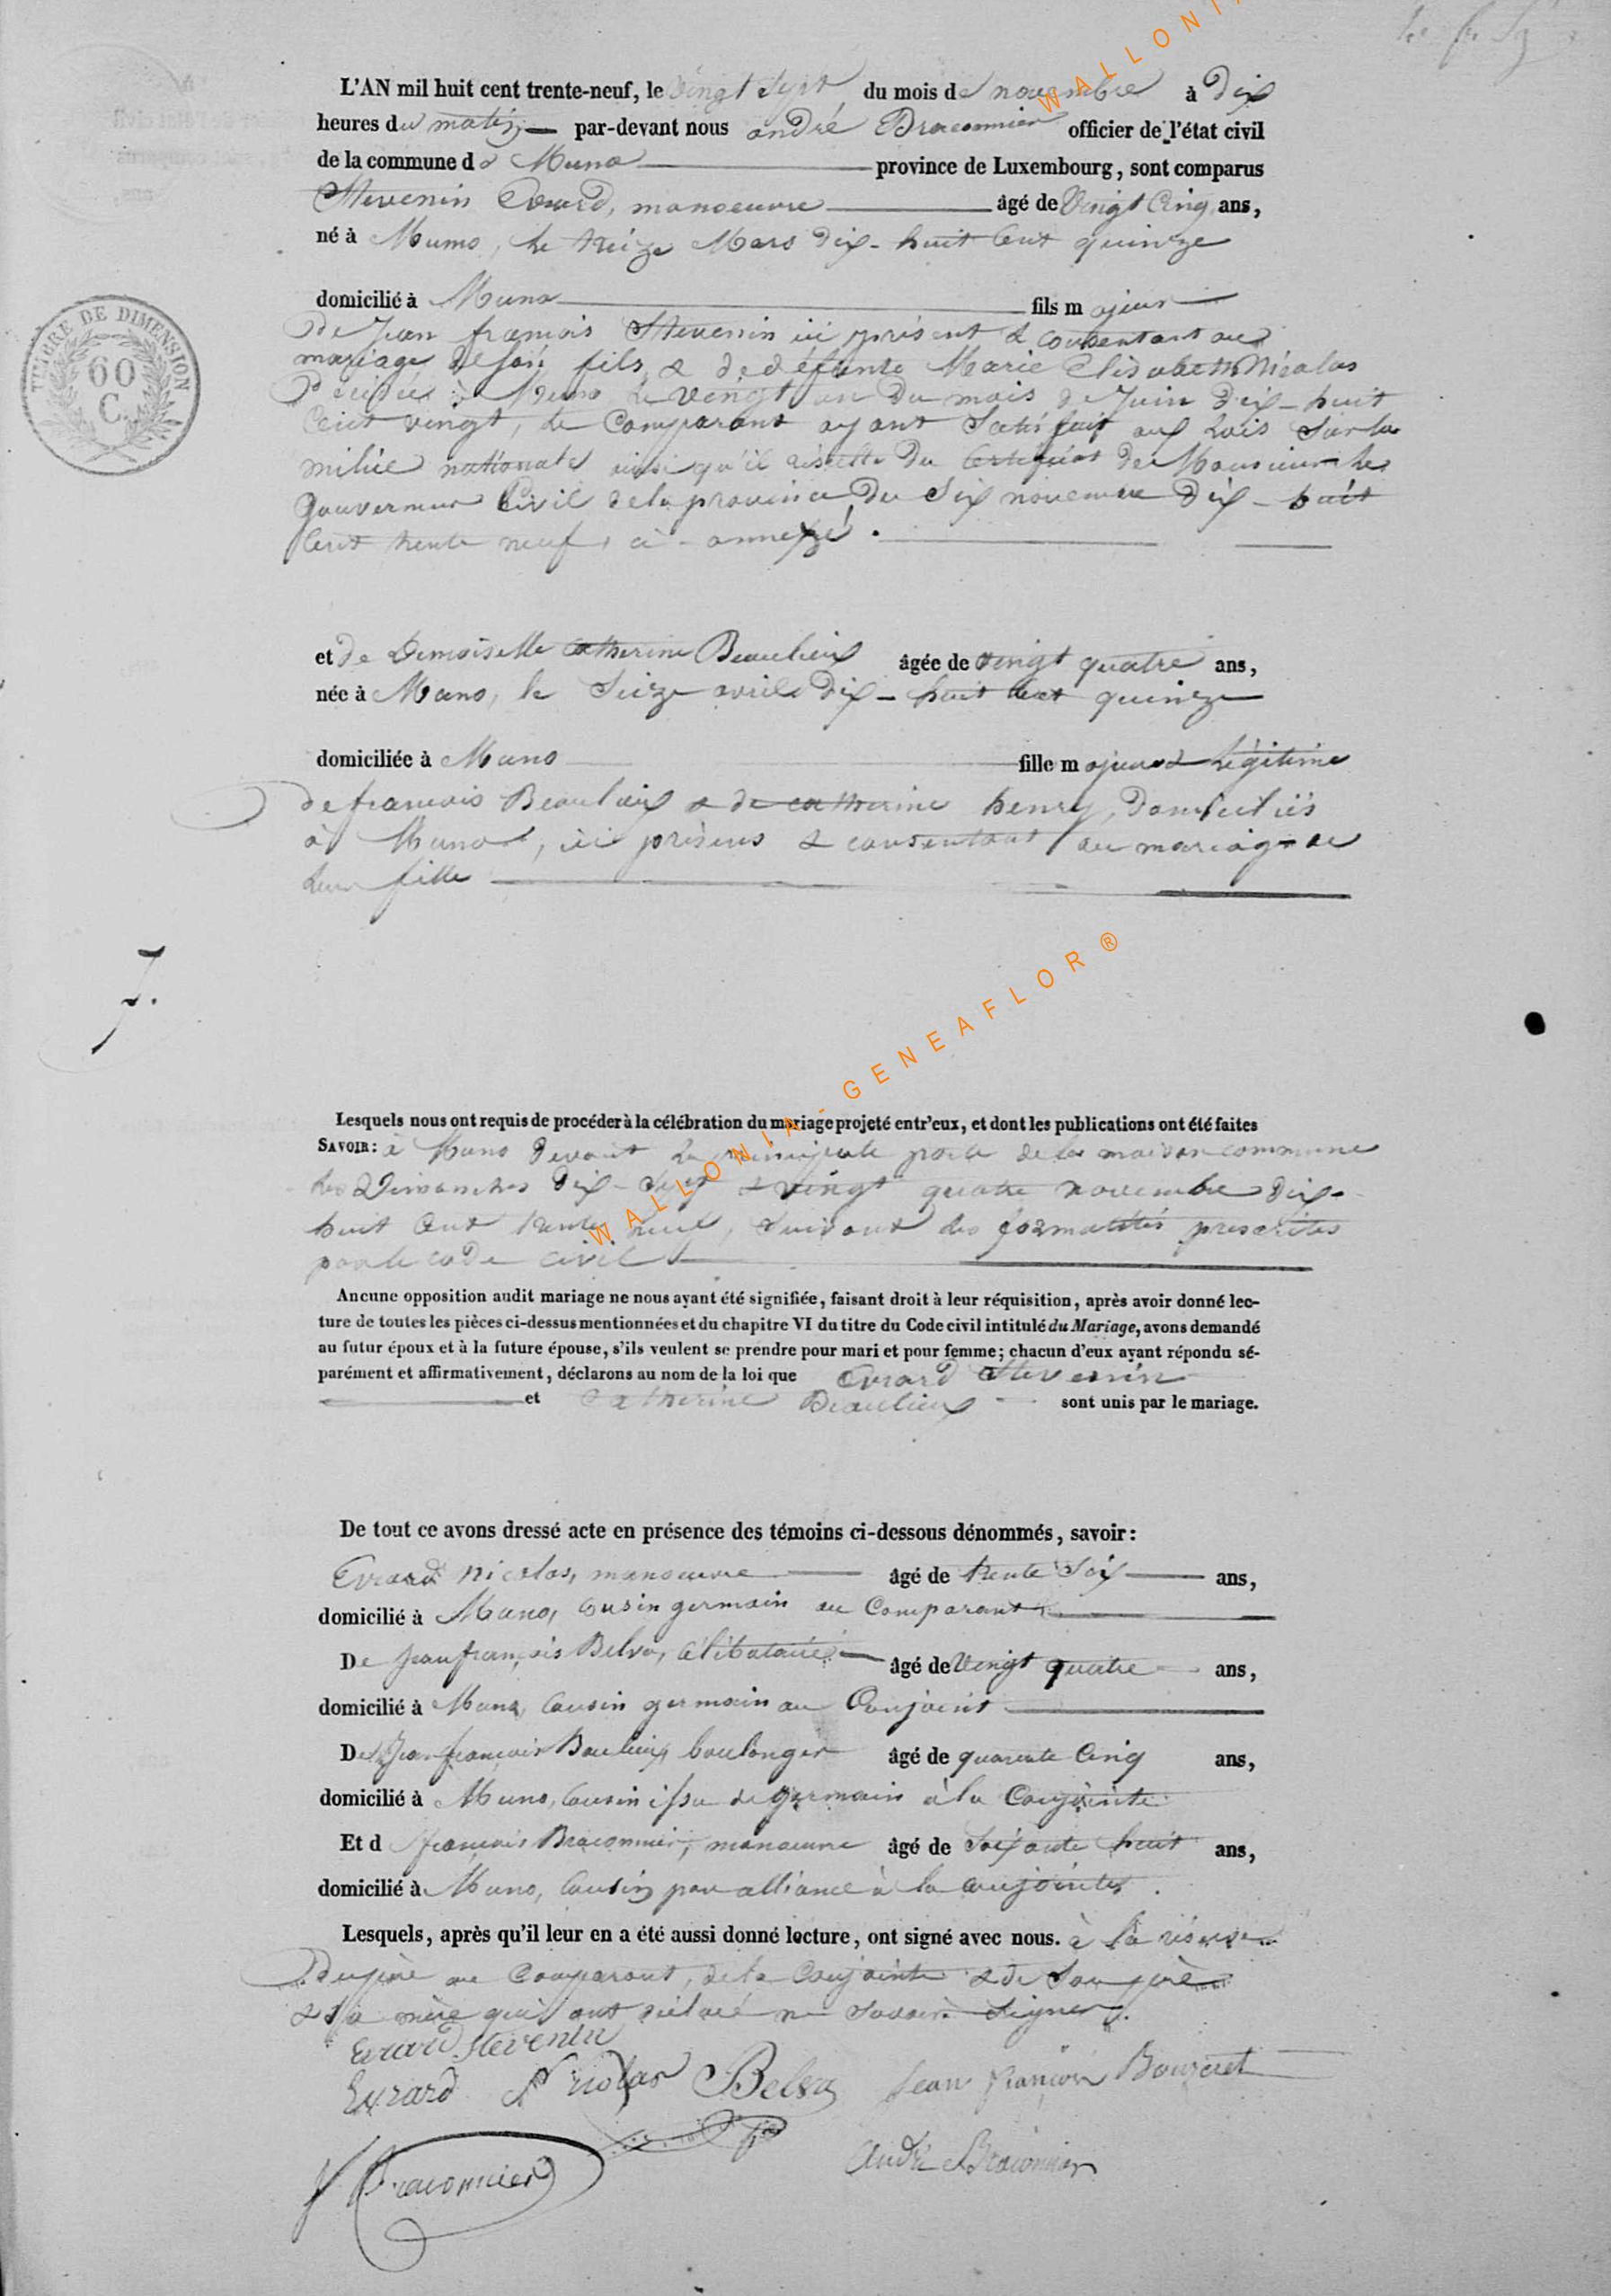 L'AN mil huit cent trente-neuf, le vingt Sept du mois de novembre à Dix
heures du matin par-devant nous andré Braconnier officier de l'état civil
de la commune de Muno province de Luxembourg, sont comparus
Stevenin Evrard, manoeuvre âgé de Vingt Cinq ans,
né à Muno, le treize Mars Dix-huit Cent quinze
domicilié à Muno fils majeur
De Jean françois Stevenin ici présent & consentant au
mariage de son fils, & de défunte Marie Elisabeth Nicolas
Décédée à Muno le vingt un du mois de Juin Dix-huit
Cent vingt, le Comparant ayant Satisfait aux Lois Sur la
milice nationale ainsi qu'il résulte du Certificat de Monsieur le
Gouverneur Civil de la province du Six novembre Dix-huit
Cent trente neuf, ci-annexé.
TIMBRE DE DIMENSION
60
C.
et de Demoiselle Catherine Beaulieux âgée de vingt quatre ans,
née à Muno, le Seize avril Dix-huit Cent quinze
domiciliée à Muno fille majeure & Légitime
de francois Beaulieux & de Catherine henry, Domiciliés
à Muno, ici présens & consentant au mariage de
Leur fille
7.
Lesquels nous ont requis de procéder à la célébration du mariage projeté entr'eux, et dont les publications ont été faites
SAVOIR: à Muno Devant la principale porte de la maison commune
les Dimanches Dix-Sept & vingt quatre novembre Dix-
huit Cent trente neuf, Suivant les formalités prescrites
par le code civil
Aucune opposition audit mariage ne nous ayant été signifiée, faisant droit à leur réquisition, après avoir donné lec-
ture de toutes les pièces ci-dessus mentionnées et du chapitre VI du titre du Code civil intitulé du Mariage, avons demandé
au futur époux et à la future épouse, s'ils veulent se prendre pour mari et pour femme; chacun d'eux ayant répondu sé-
parément et affirmativement, déclarons au nom de la loi que Evrard Stevenin
et Catherine Beaulieux sont unis par le mariage.
De tout ce avons dressé acte en présence des témoins ci-dessous dénommés, savoir:
Evrard Nicolas, manoeuvre âgé de trente Six ans,
domicilié à Muno, Cusin germain au Comparant
De Jean françois Belva, Célibataire âgé de Vingt quatre ans,
domicilié à Muno, Cousin germain au Conjoint
De Jean françois boulanger âgé de quarante Cinq ans,
domicilié à Muno, Cousin issu de germain à la Conjointe
Et d françois Braconnier, manoeuvre âgé de Soixante huit ans,
domicilié à Muno, Cousin par alliance à la Conjointe.
Lesquels, après qu'il leur en a été aussi donné lecture, ont signé avec nous. à la réserve
Du père au Comparant, de la Conjointe & de Son père
& Sa mère qui ont déclaré ne Savoir Signer.
Evrard Stevenin
Evrard Nicolas Belva Jean françois
f Braconnier André Braconnier
WALLONIA - GENEAFLOR ®